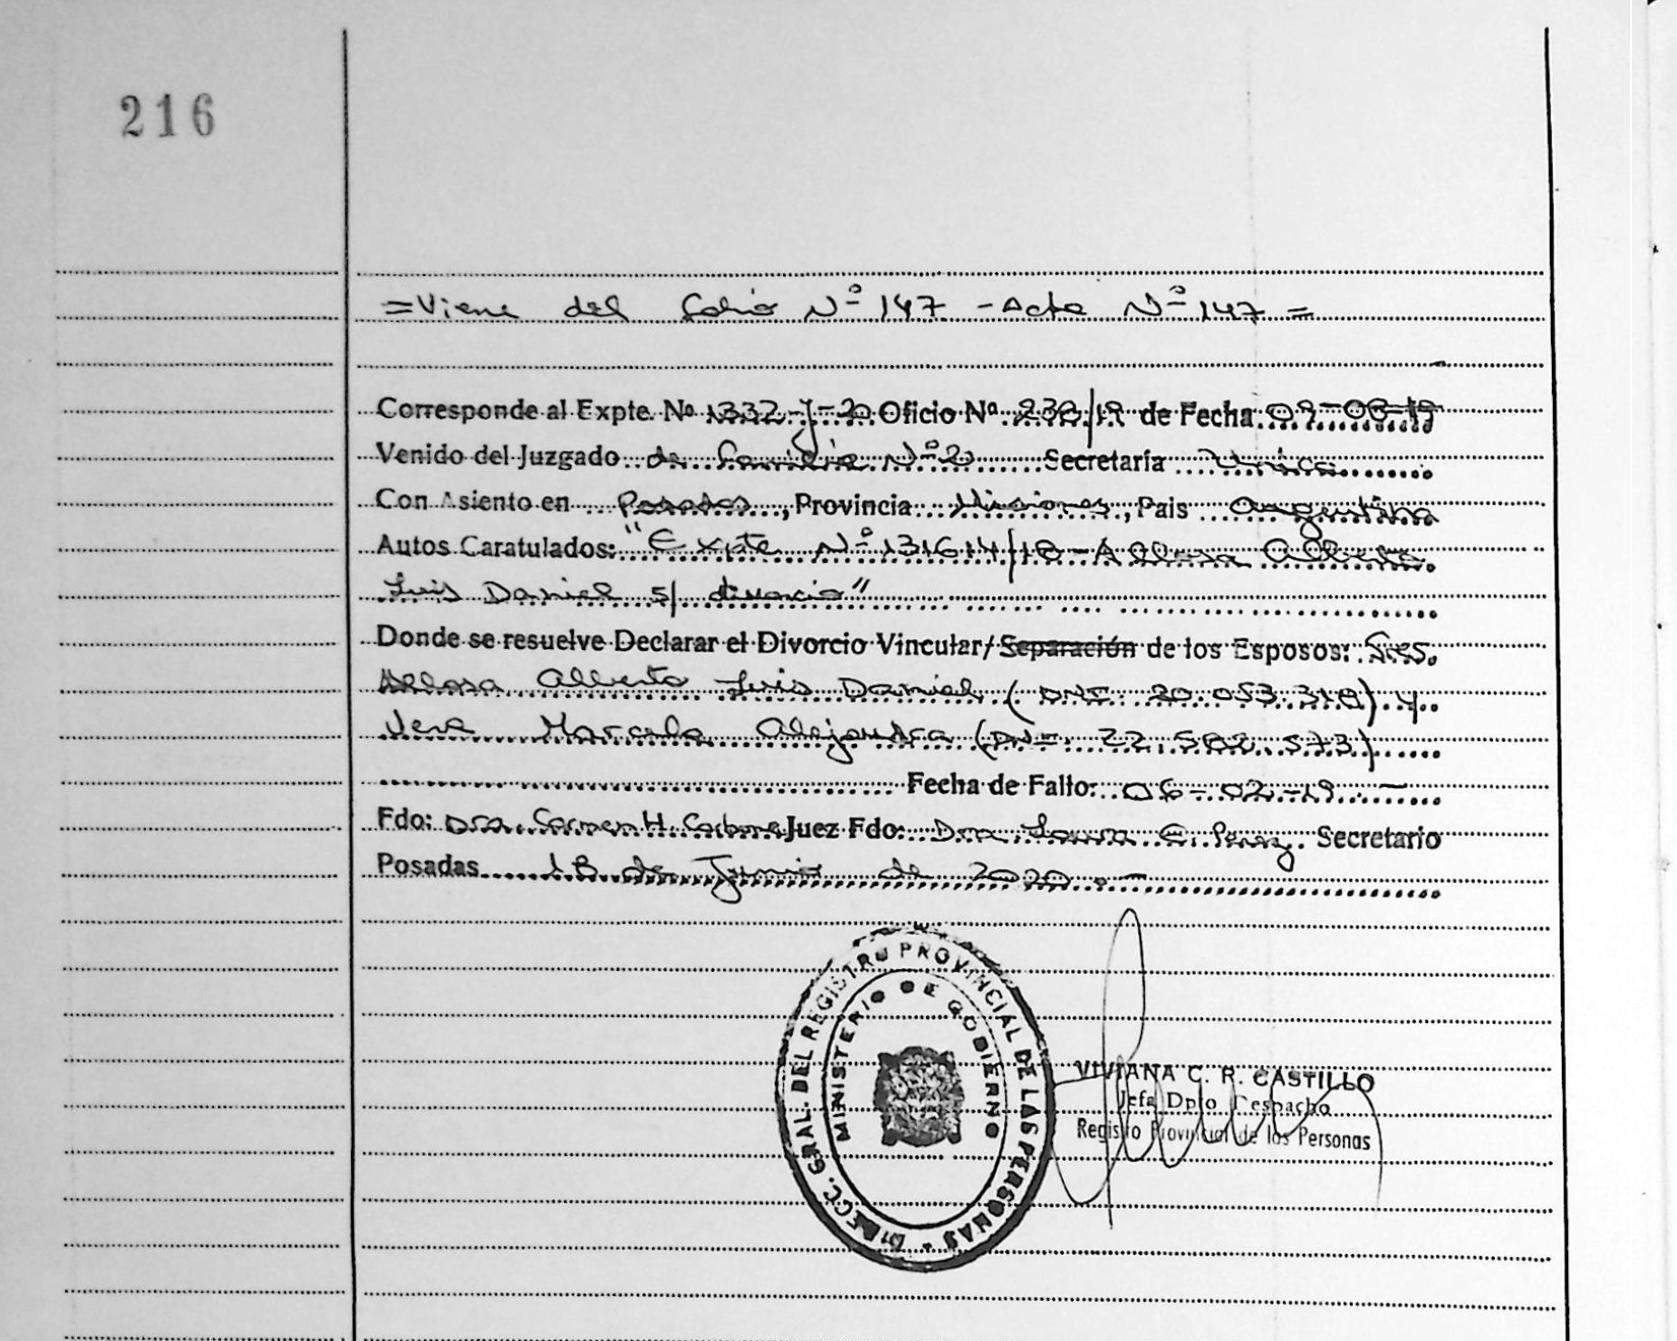 216
=Viene del Folio Nº 147 - Acta Nº 147 =
Corresponde al Expte. Nº 1332-J-20 Oficio Nº 230/19 de Fecha 09-08-19
Venido del Juzgado de Familia Nº 2 Secretaría Única
Con Asiento en Posadas, Provincia Misiones, Pais Argentina
Autos Caratulados: "Expte Nº 131614/18 - Allosa Alberto
Luis Daniel s/ divorcio"
Donde se resuelve Declarar el Divorcio Vincular/Separación de los Esposos: Sres.
Allosa Alberto Luis Daniel (DNI. 20.053.318) y
Vera Marcela Alejandra (DNI. 22.502.573)
Fecha de Fallo: 06-02-19.-
Fdo: Dra. Carmen H. Carbone Juez Fdo: Dra Laura E. Perez. Secretario
Posadas 18 de Junio de 2020.-
DIRECC. GRAL. DEL REGISTRO PROVINCIAL DE LAS PERSONAS
MINISTERIO DE GOBIERNO
VIVIANA C. R. CASTILLO
Jefa Dpto Despacho
Registro Provincial de las Personas